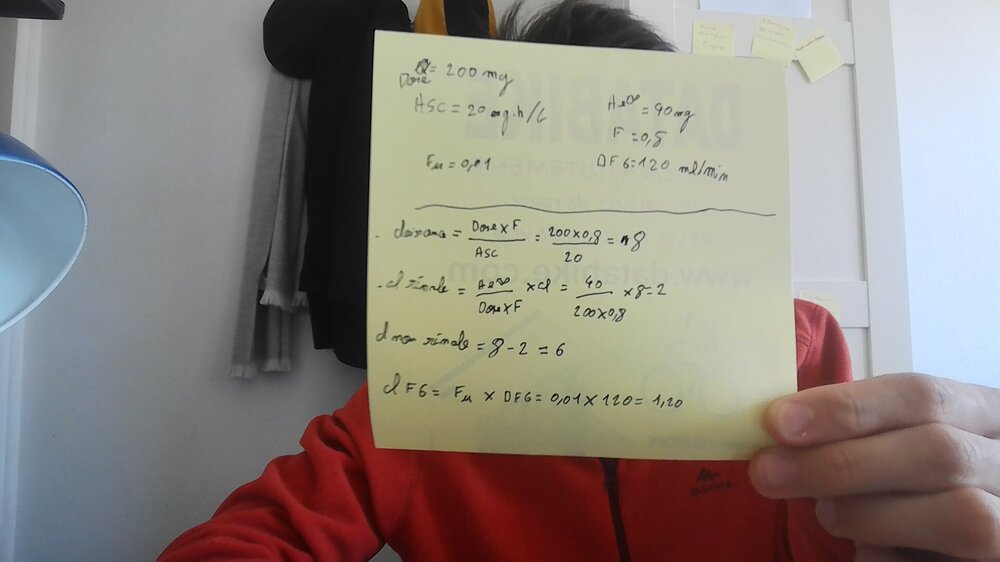 Dose = 200 mg
ASC = 20 mg.h/L
Ae∞ = 40 mg
F = 0,8
Fu = 0,01
DFG = 120 ml/min
= Dose x F / ASC = 200 x 0,8 / 20 = 8
- cl rénale = Ae∞ / Dose x F x cl = 40 / 200 x 0,8 x 8 = 2
cl non rénale = 8 - 2 = 6
cl FG = Fu x DFG = 0,01 x 120 = 1,20
DATABIKE
www.databike.com
QUECHUA